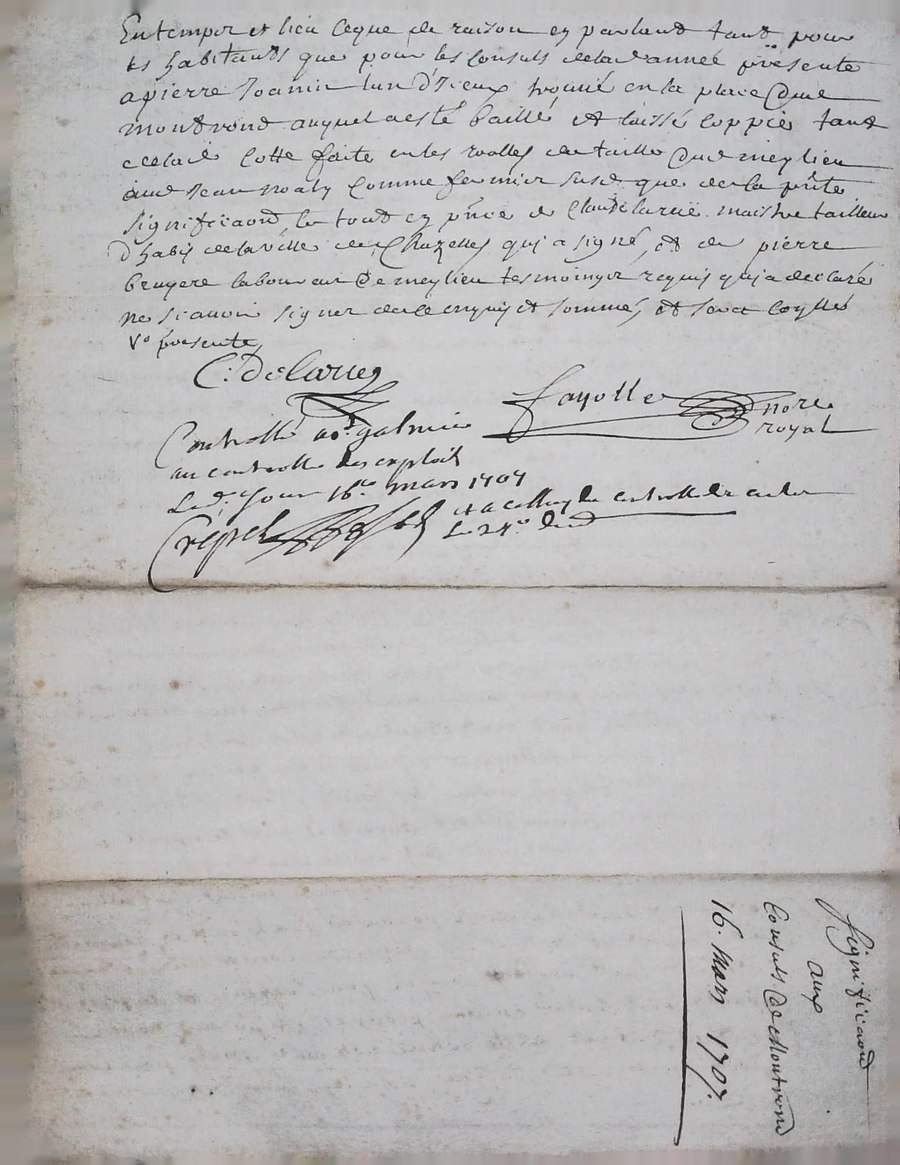 En temps et lieu ce que de raison en parlant tant pour
les habitants que pour les consuls de lad année présente
a pierre Joanin lun d'Iceux trouvé en la place dud
montrond auquel a esté baillé et laissé coppie tant
de lad cotte faite en les roolles de taille dud meylieu
aud Jean noaly comme fermier susd que de la pñte
significaõn le tout en pñce de Claude larue maistre tailleur
d'habis de la ville de Chazelles quj a signé, et de pierre
bruyere laboureur de meylieu tesmoings requis quj a declaré
ne scavoir signer de ce enquis et sommé, et
pñsente
C: Delarue
fayolle nore
royal
Controllé a St galmier
au controlle des exploits
Led. Jour 16e mars 1707
Crespet et a celluy du controlle des actes
Le 24e dud
Significaõn
aux
Consuls de Montrond
16. mars 1707.